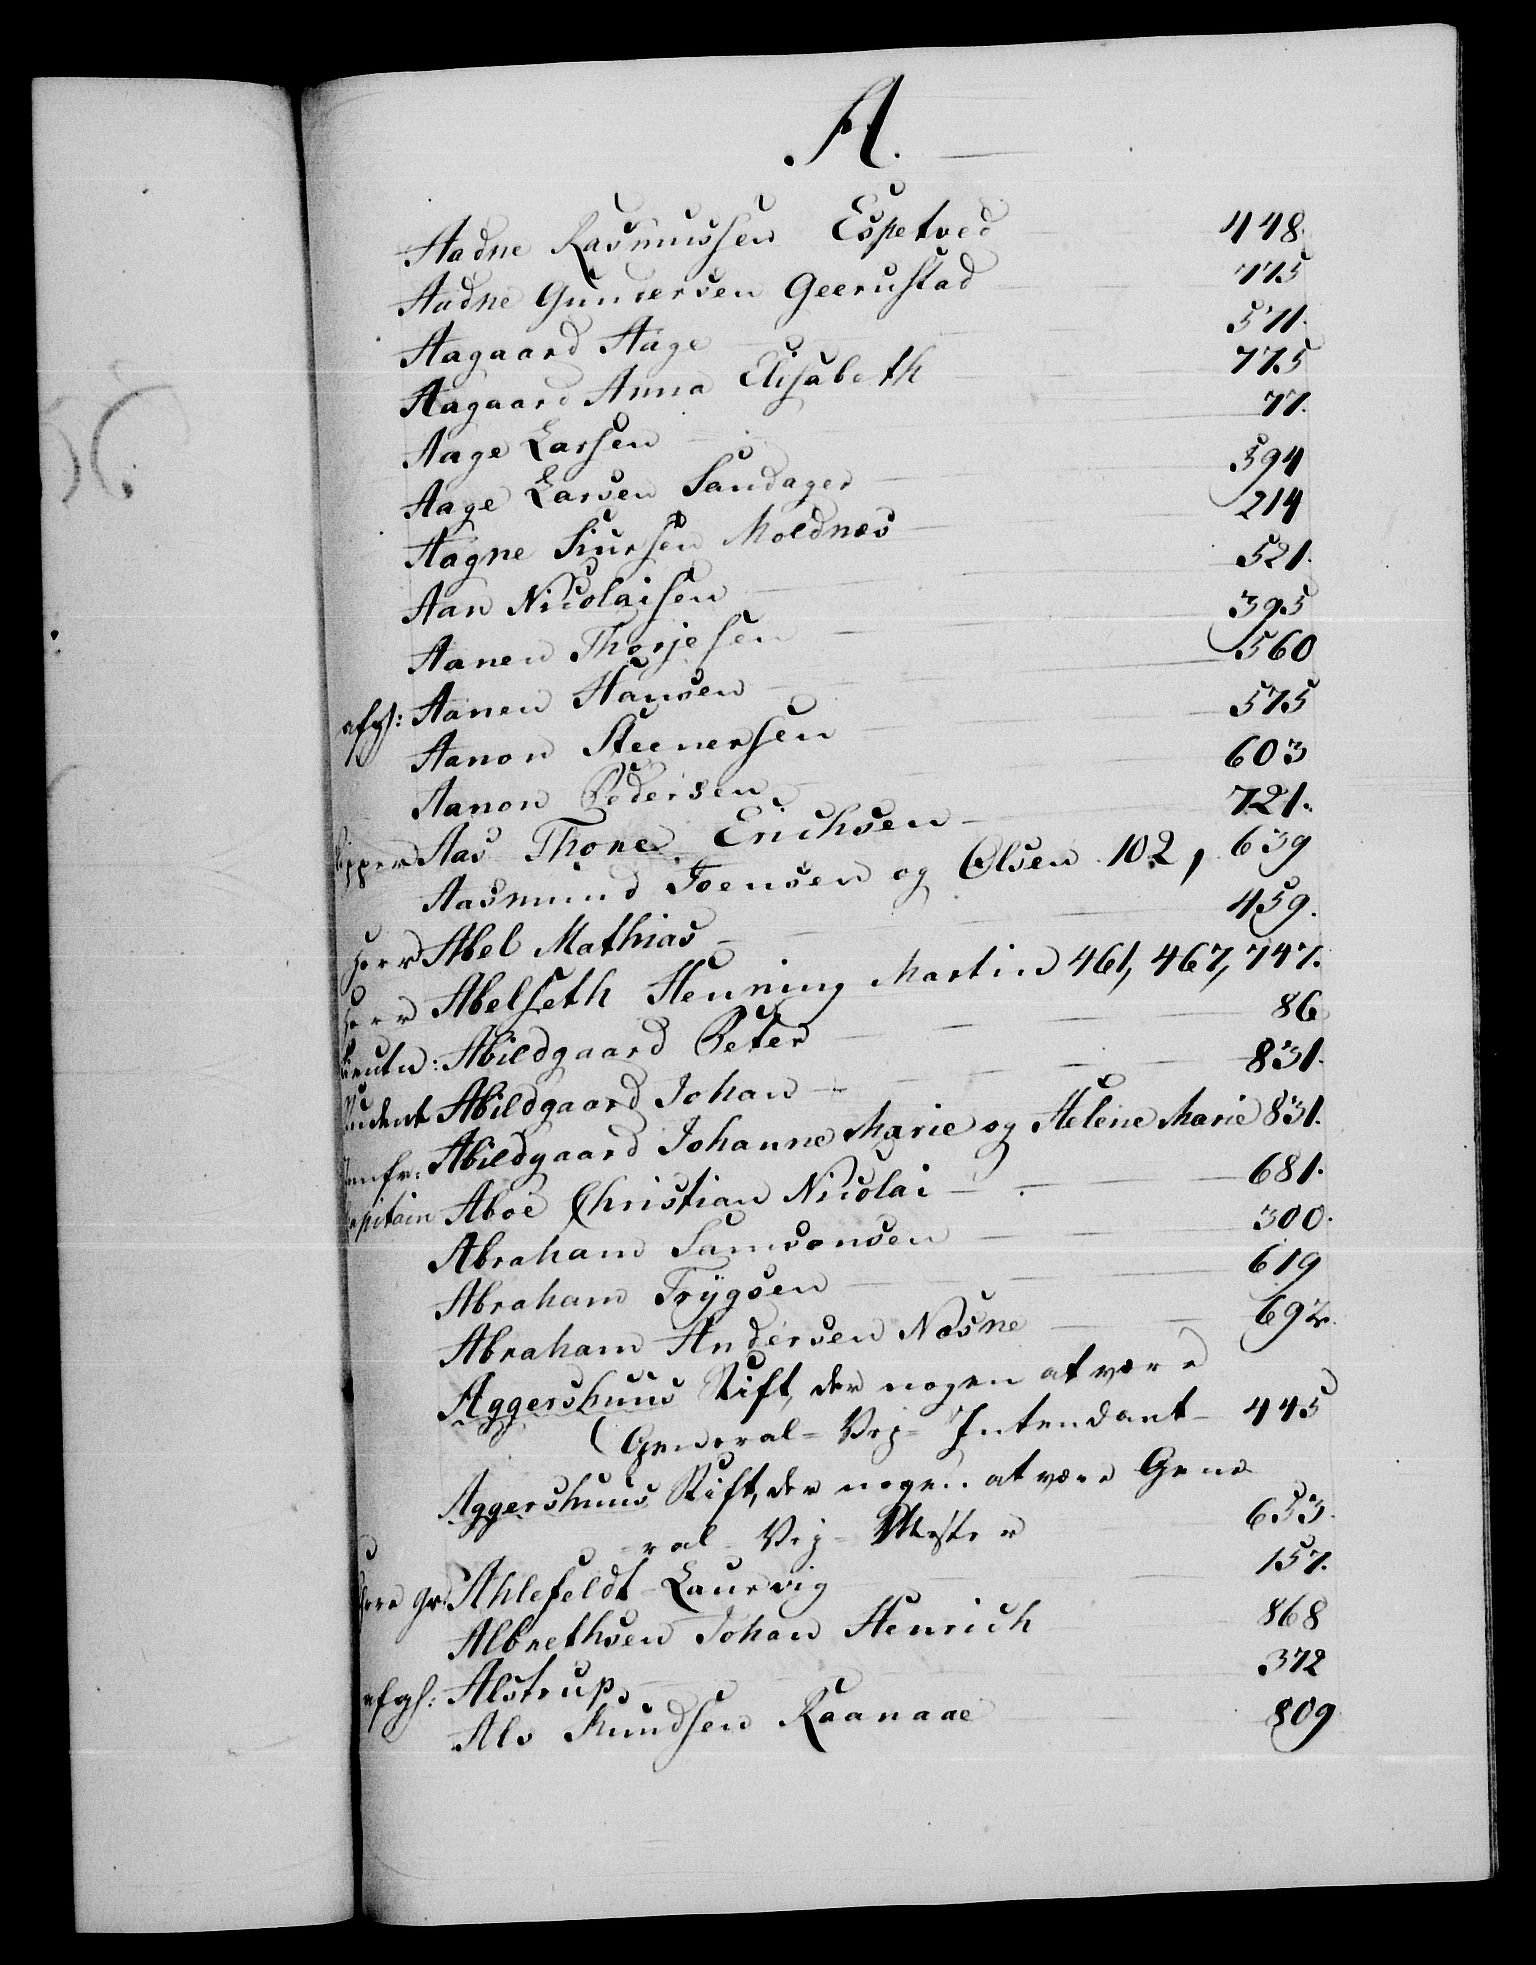 A.
Aadne Rasmussen Espetved 448.
Aadne Gundersen Geerustad 775
Aagaard Aage 571.
Aagaard Anna Elisabeth 775
Aage Larsen 77.
Aage Larsen Sandager 394
Aagne Siursen Moldnæs 214
Aan Nicolaisen 521.
Aanen Thorjesen 395
afg: Aanen Hansen 560
Aanon Steenersen 575
Aanon Pedersen 603
Aas Thone Erichsen 721.
Aasmund Joensen og Olsen 102, 639
Herr Abel Mathias 459.
Herr Abelseth Henning Martin 461, 467, 747.
Lieutn: Abildgaard Peter 86
Student Abildgaard Johan 831.
Jomfr: Abildgaard Johanne Marie og Helene Marie 831.
Capitain Aboe Christian Nicolai 681.
Abraham Samsonsen 300.
Abraham Trygsen 619
Abraham Andersen Næsne 692.
Aggershuus Stift, der nogen at være
General-Vej-Intendant 445
Aggershuus Stift, der nogen at være Gene
ral-Vej-Mester 653.
Herr Gr. Ahlefeldt-Laurvig 157.
Albrethsen Johan Henrich 868
afg: Alstrup 372
Alv Knudsen Raanaae 809